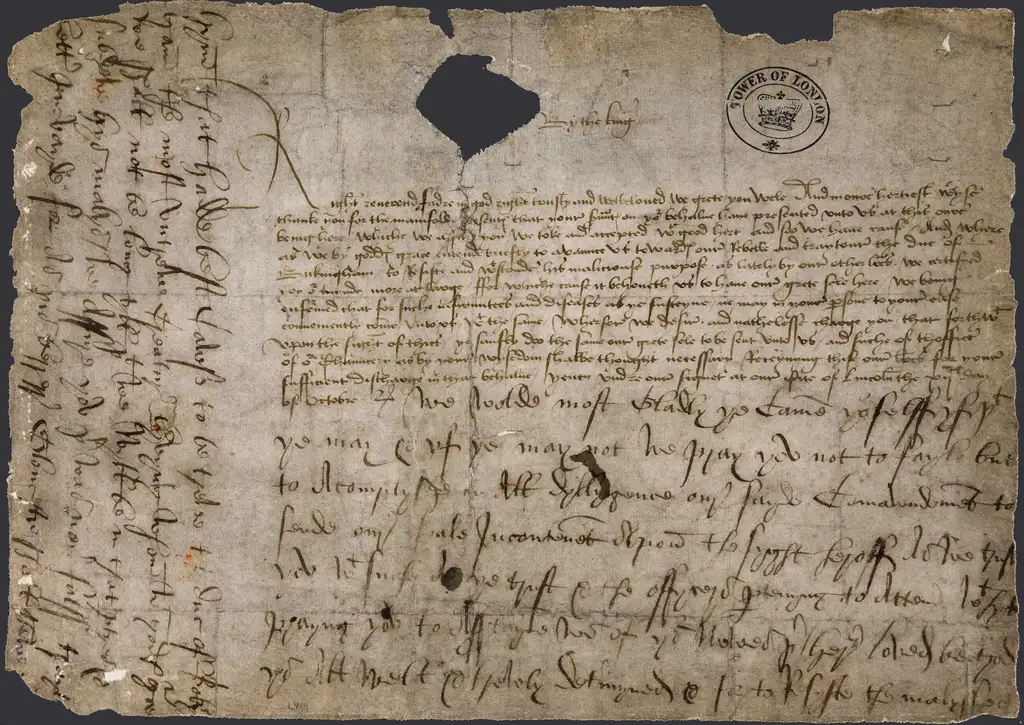 TOWER OF LONDON
By the king
Right reverend fadre in god right trusty and welbeloved We grete you wele And in our hertiest wyse
thanke you for the manifold presents that your servnts on yor behalve have presented unto us at this oure
being here Whiche we assure you we toke and accepted wt good hert and so we have cause And Where
as we by goddes grace entend briefly to avaunce us towards oure Rebelle and traytour the duc of
Bukingham to resiste and withstande his malicious purpose as lately by oure other lettres we certified
you or mynde more at large ffor whiche cause it behoveth us to have oure grete sele here We being
enfourmed that for suche infirmitees and diseases as ye susteyne ne may in your persone to your ease
conveniently come unto us wt the same Wherfore we desire and nathelesse charge you that forthwt
upon the sight of thies ye saufly do the same oure grete sele to be sent unto us and suche of thofficers
of or Chauncery as by your wisedom shalbe thought necessary Receyving thise oure lettres for your
sufficient discharge in that behalve Yeven undre oure signet at oure Cite of Lincoln the xij day
of Octobre
We wolde most gladly ye came yor selff yf yt
ye may & yf ye may not We pray you not to fayle but
to Acomplyshe in All dyllygence our sayde Comawndement to
sende our seale Incontenent Apon the syght heroff As we trust
you wt suche As ye trust & the officers perteyning to Attend wt hyt
praying you to Assertayne us of yor Newes Her loved be god
ys All well & trewly determyned & for to Resiste the malysse of
hym that hadde best Cawse to be trewe the duc of Bokyngham
the most untrewe creatur lyvyng Whom wt godes grace
we shall not be long tyll that we wyll be in that partyes &
subdewe hys malys We assure you was never falss traytor
bettr purvayde for